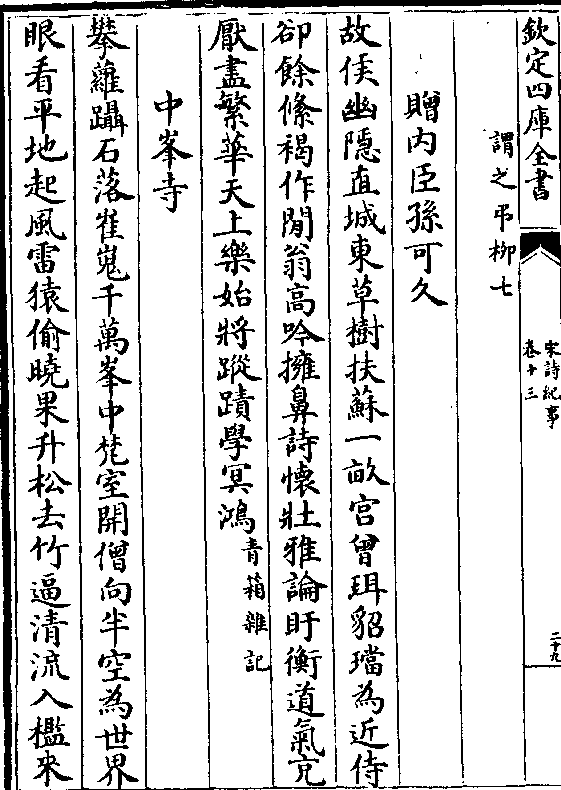 欽定四庫全書
宋詩紀事
卷十三
二十九
謂之弔柳七
贈内臣孫可久
故侯幽隱直城東草樹扶蘇一畝宫曾珥貂璫為近侍
卻餘絛褐作閒翁高吟擁鼻詩懷壯雅論盱衡道氣充
厭盡繁華天上樂始將蹤蹟學冥鴻青箱雜記
中峯寺
攀蘿躡石落崔嵬千萬峯中梵室開僧向半空為世界
眼看平地起風雷猿偷曉果升松去竹逼清流入檻來